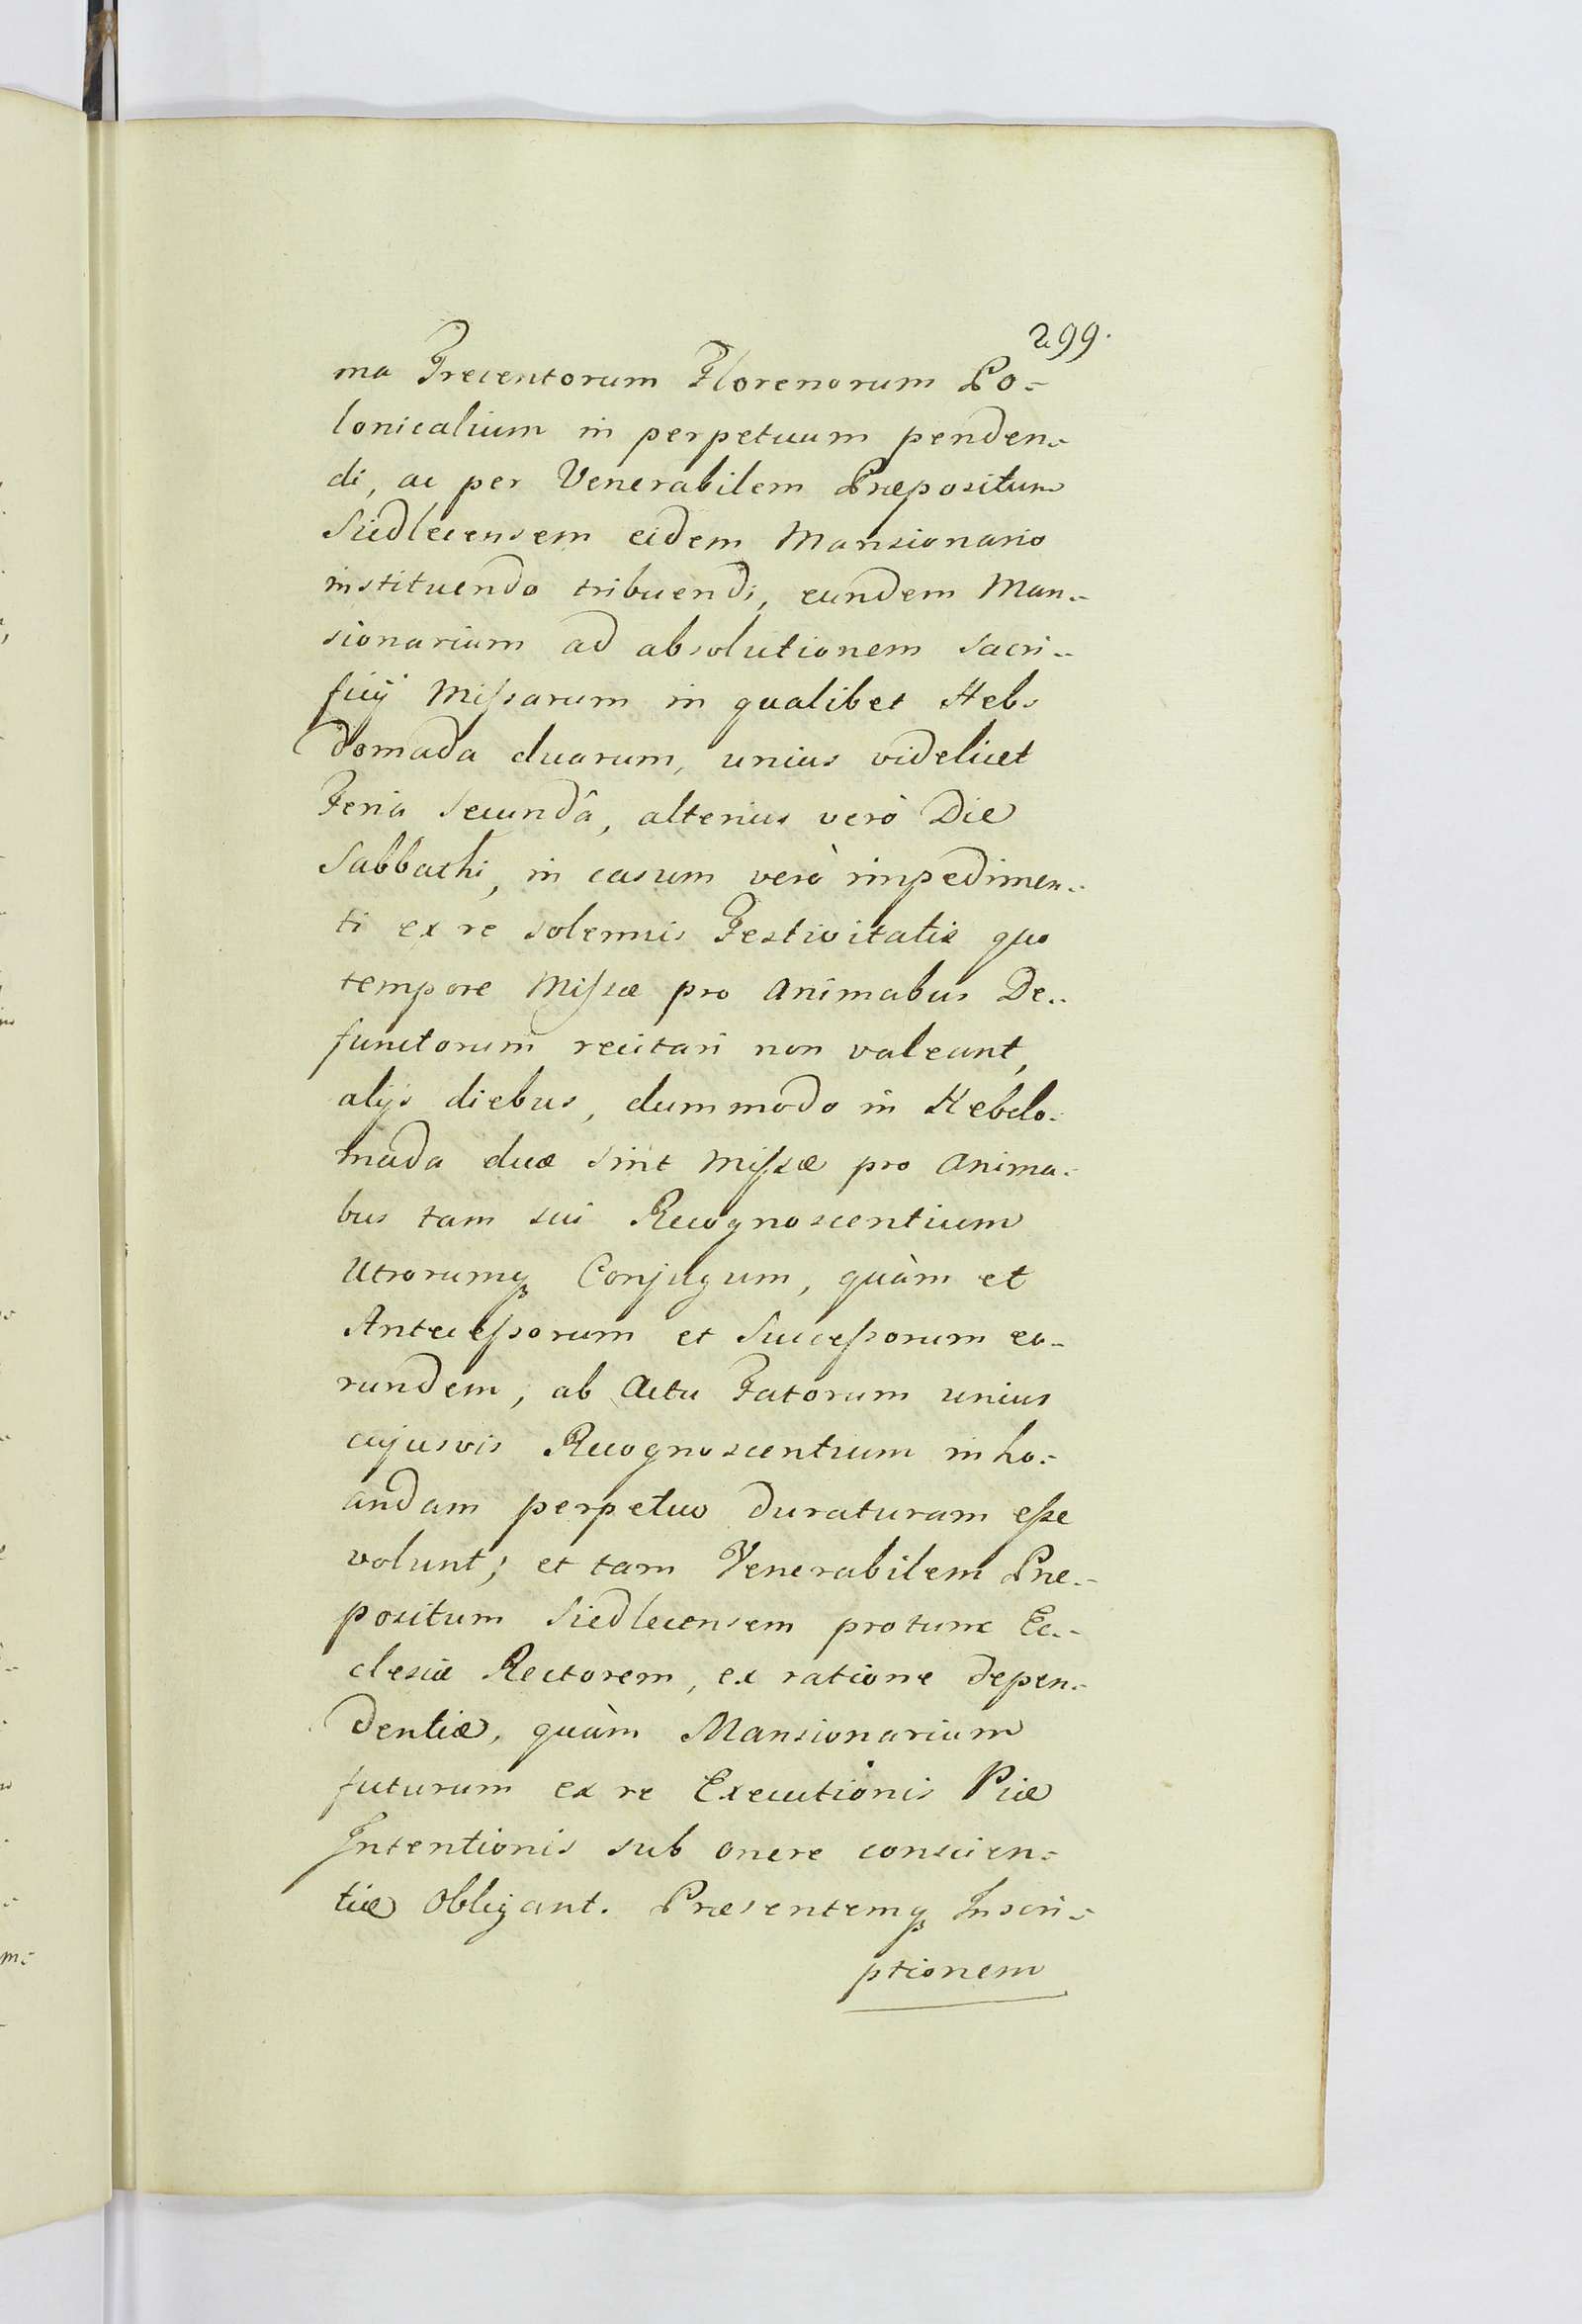 299.
ma Trecentorum Florenorum Po=
lonicalium in perpetuum penden=
di, ac per Venerabilem Præpositum
Siedlecensem eidem Mansionario
instituendo tribuendi, eundem Man=
sionarium ad absolutionem Sacri=
ficij Missarum in qualibet Heb
domada duarum, unius videlicet
Feria Secundâ, alterius verò Die
Sabbathi, in casum verò impedimen=
ti ex re solemnis Festivitatis quo
tempore Missæ pro Animabus De=
functorum recitari non valeant,
alijs diebus, dummodo in Hebdo=
mada duæ sint Missæ pro Anima=
bus tam sui Recognoscentium
Utrorumq Conjugum, quàm et
Antecessorum et Successorum eo=
rundem, ab Actu Fatorum unius
cujusvis Recognoscentium inho=
andam perpetuo duraturam esse
volunt; et tam Venerabilem Præ=
positum Siedlecensem protunc Ec=
clesiæ Rectorem, ex ratione depen=
dentiæ, quàm Mansionarium
futurum ex re Executionis Piæ
Intentionis sub onere conscien=
tiæ Obligant. Præsentemq Inscri=
ptionem